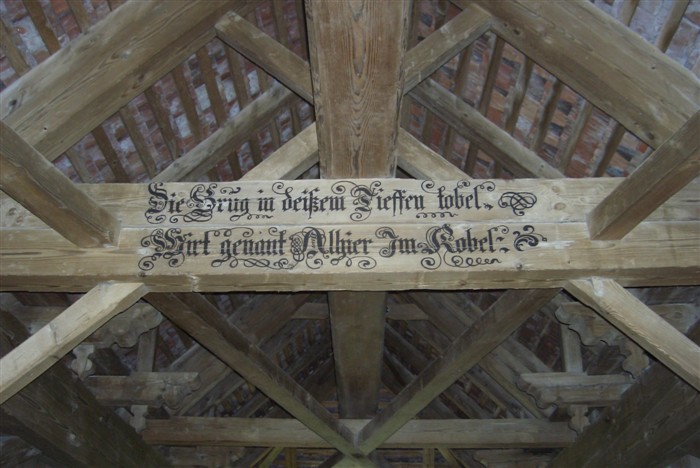 Die Brug in deißem Tieffen tobel.
Wirt genant Alhier Im Kobel: